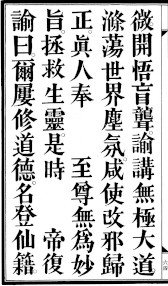 微開悟盲聾諭講無極大道
滌蕩世界塵氛咸使改邪歸
正。眞人奉　　至尊無爲妙
旨。拯救生靈。是時　　帝復
諭曰。爾屢修道德。名登仙籍